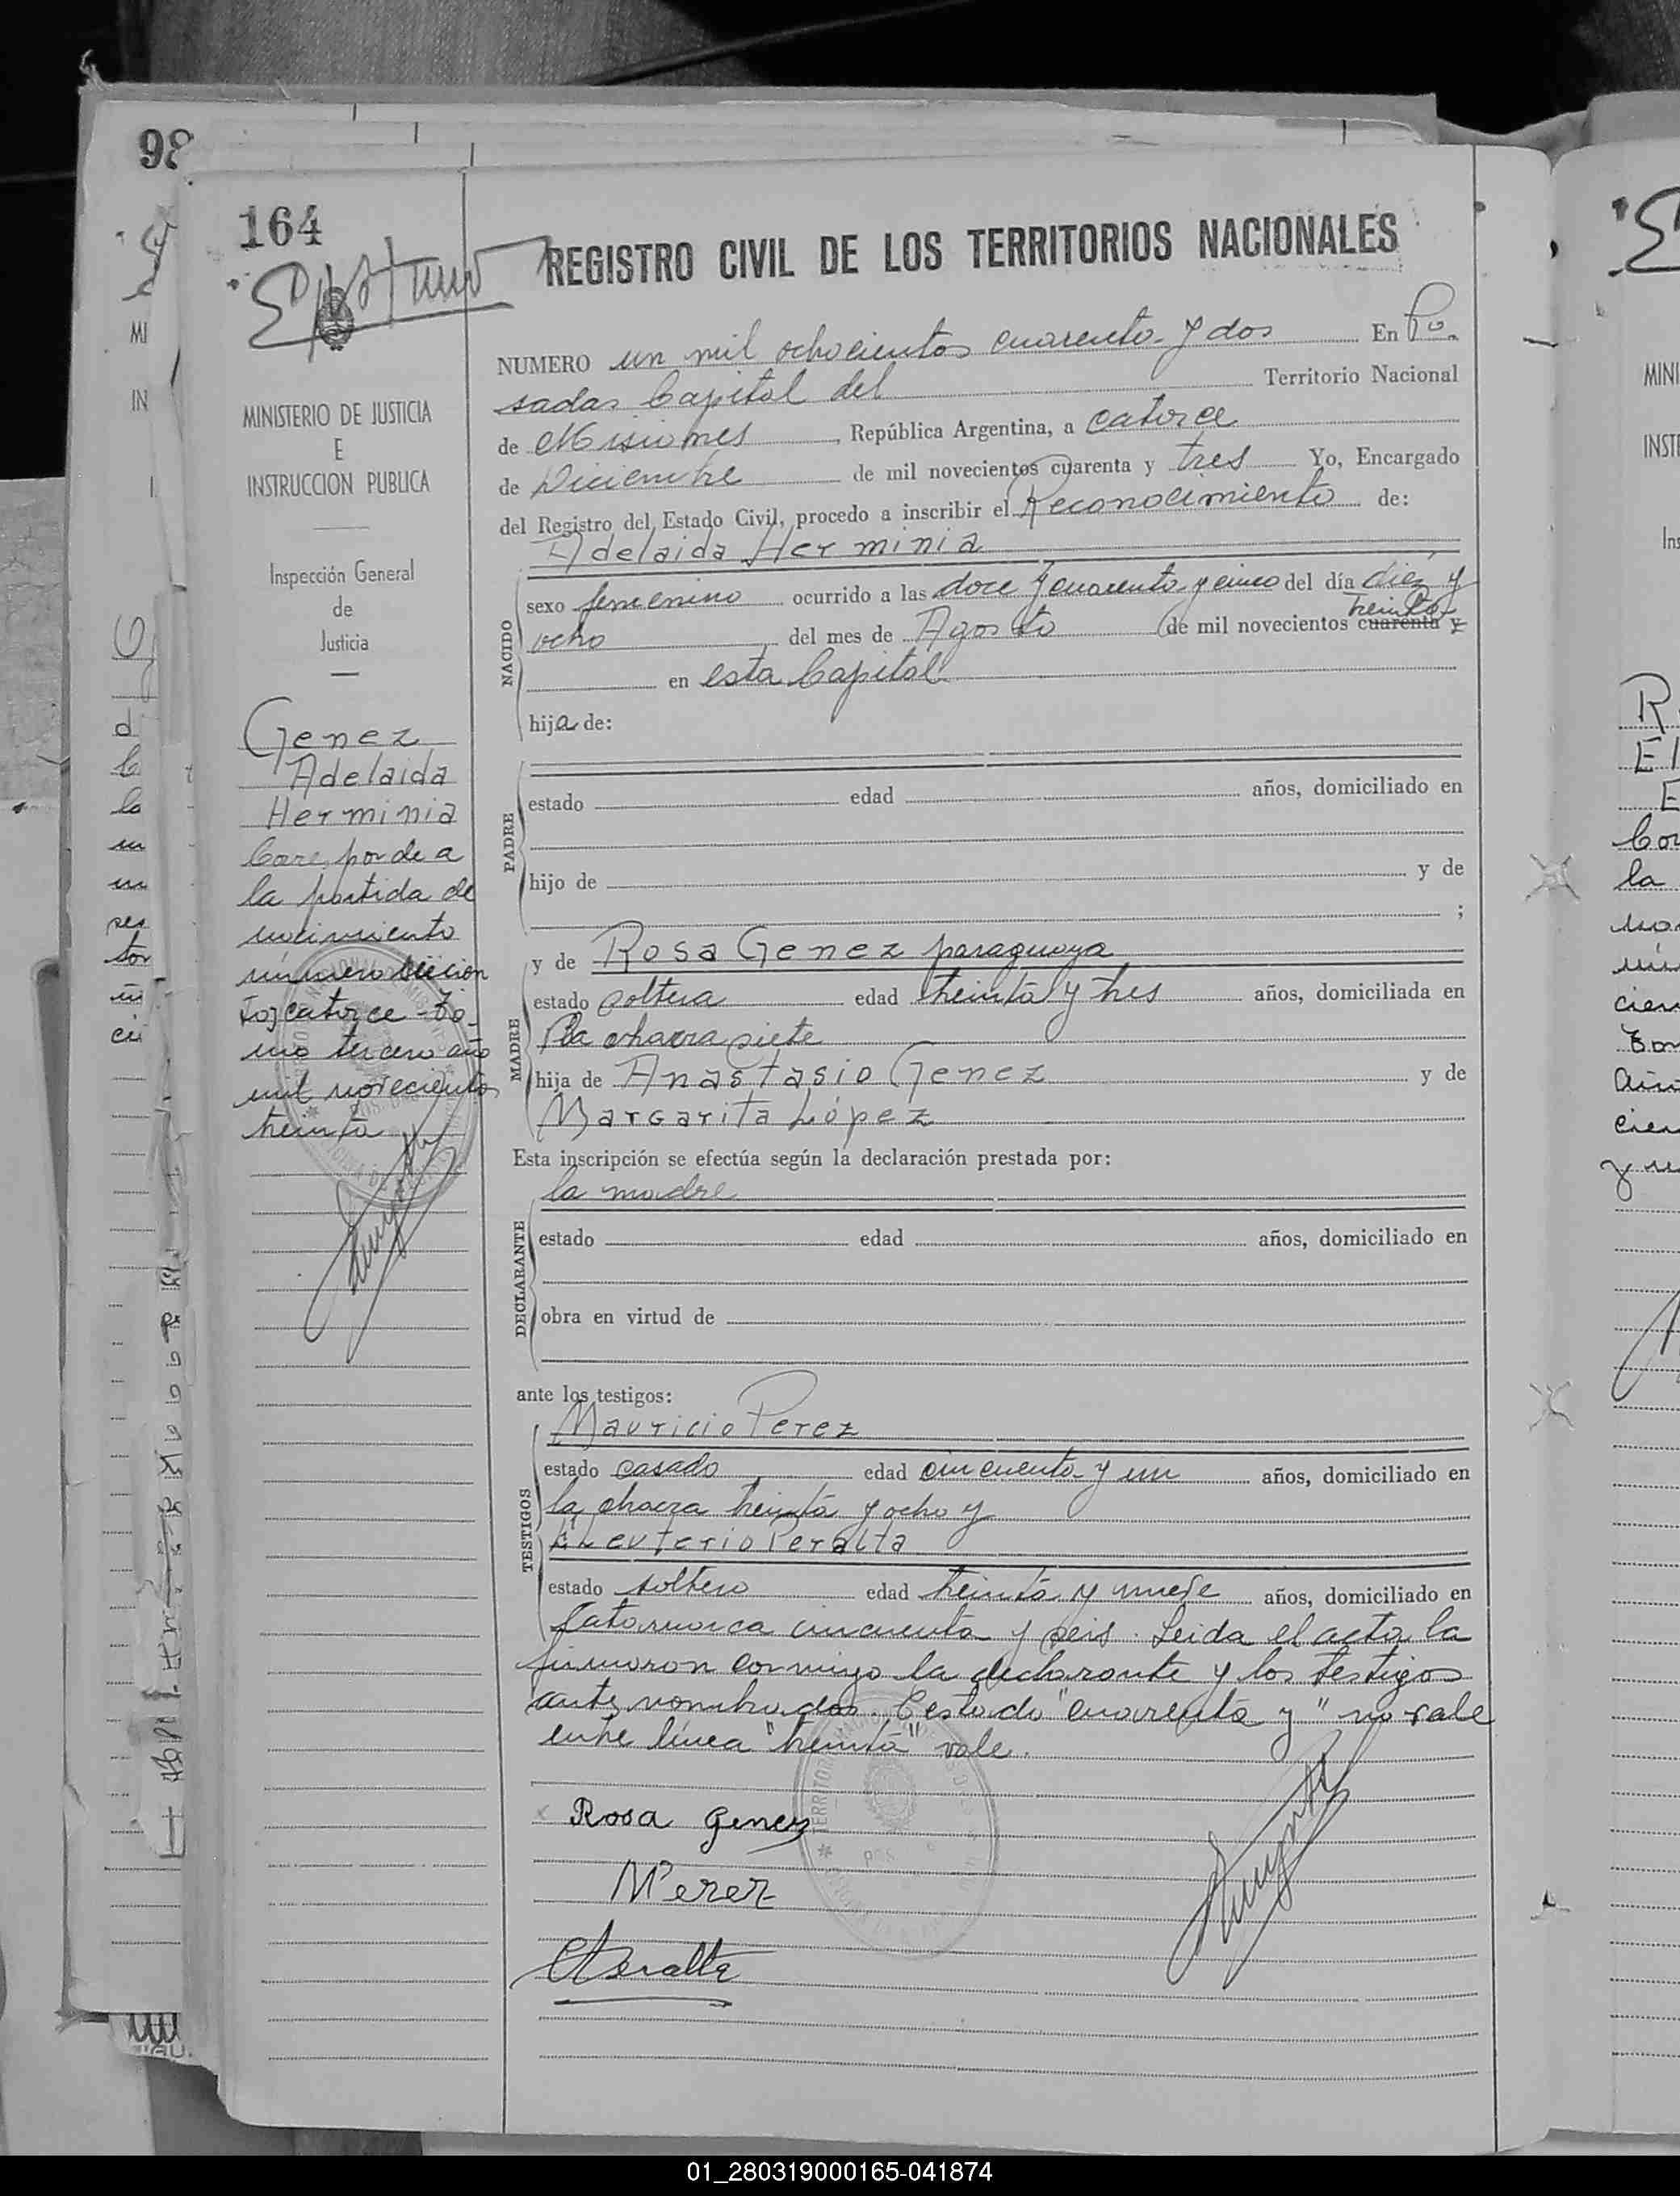 98
164
REGISTRO CIVIL DE LOS TERRITORIOS NACIONALES
NUMERO un mil ochocientos cuarenta y dos En Po
sadas Capital del Territorio Nacional
de Misiones, República Argentina, a catorce
de Diciembre de mil novecientos cuarenta y tres Yo, Encargado
del Registro del Estado Civil, procedo a inscribir el Reconocimiento de:
Adelaida Herminia
NACIDO
sexo femenino ocurrido a las doce y cuarenta y cinco del día diez y
treinta
ocho del mes de Agosto de mil novecientos cuarenta y
en esta Capital
hija de:
PADRE
estado edad años, domiciliado en
hijo de y de
;
MADRE
y de Rosa Genez paraguaya
estado soltera edad treinta y tres años, domiciliada en
la chacra siete
hija de Anastasio Genez y de
Margarita López
Esta inscripción se efectúa según la declaración prestada por:
la madre
DECLARANTE
estado edad años, domiciliado en
obra en virtud de
ante los testigos:
TESTIGOS
Mauricio Perez
estado casado edad cincuenta y un años, domiciliado en
la chacra treinta y ocho y
Eleuterio Peralta
estado soltero edad treinta y nueve años, domiciliado en
Catamarca cincuenta y seis. Leida el acta la
firmaron conmigo la declarante y los testigos
antes nombrados. Testado "cuarenta y" no vale
entre línea "treinta" vale.
Rosa Genez
MPerez
EPeralta
MINISTERIO DE JUSTICIA
E
INSTRUCCION PUBLICA
Inspección General
de
Justicia
Genez
Adelaida
Herminia
Corresponde a
la partida de
nacimiento
número
catorce To
mo tercero año
mil novecientos
treinta
MINI
INST
Ins
01_280319000165-041874